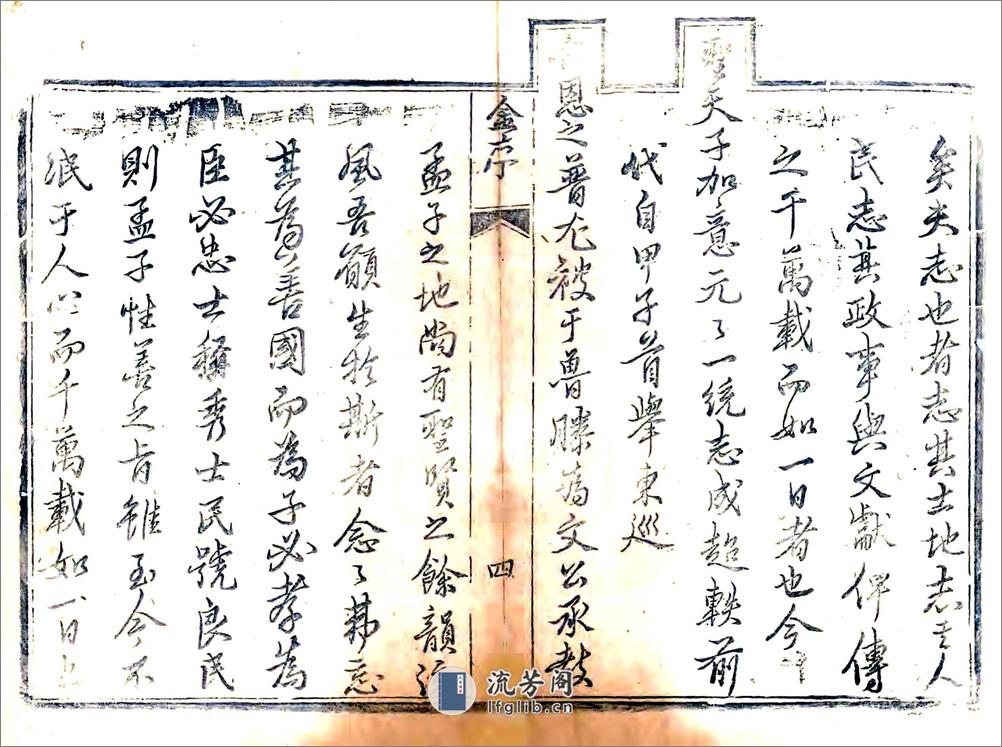 矣夫志也者志其土地志其人
民志其政事與文獻俾傳
之千萬載而如一日者也今
聖天子加意元元一統志成超軼前
代自甲子首舉東巡
恩之普尤被于魯滕為文公承教
金序
四
孟子之地尚有聖賢之餘韻
風吾願生於斯者念念弗忘
其為善國而為子必孝為
臣必忠士稱秀士民號良民
則孟子性善之旨雖至今不
泯于人心而千萬載如一日
流芳阁
lfglib.cn